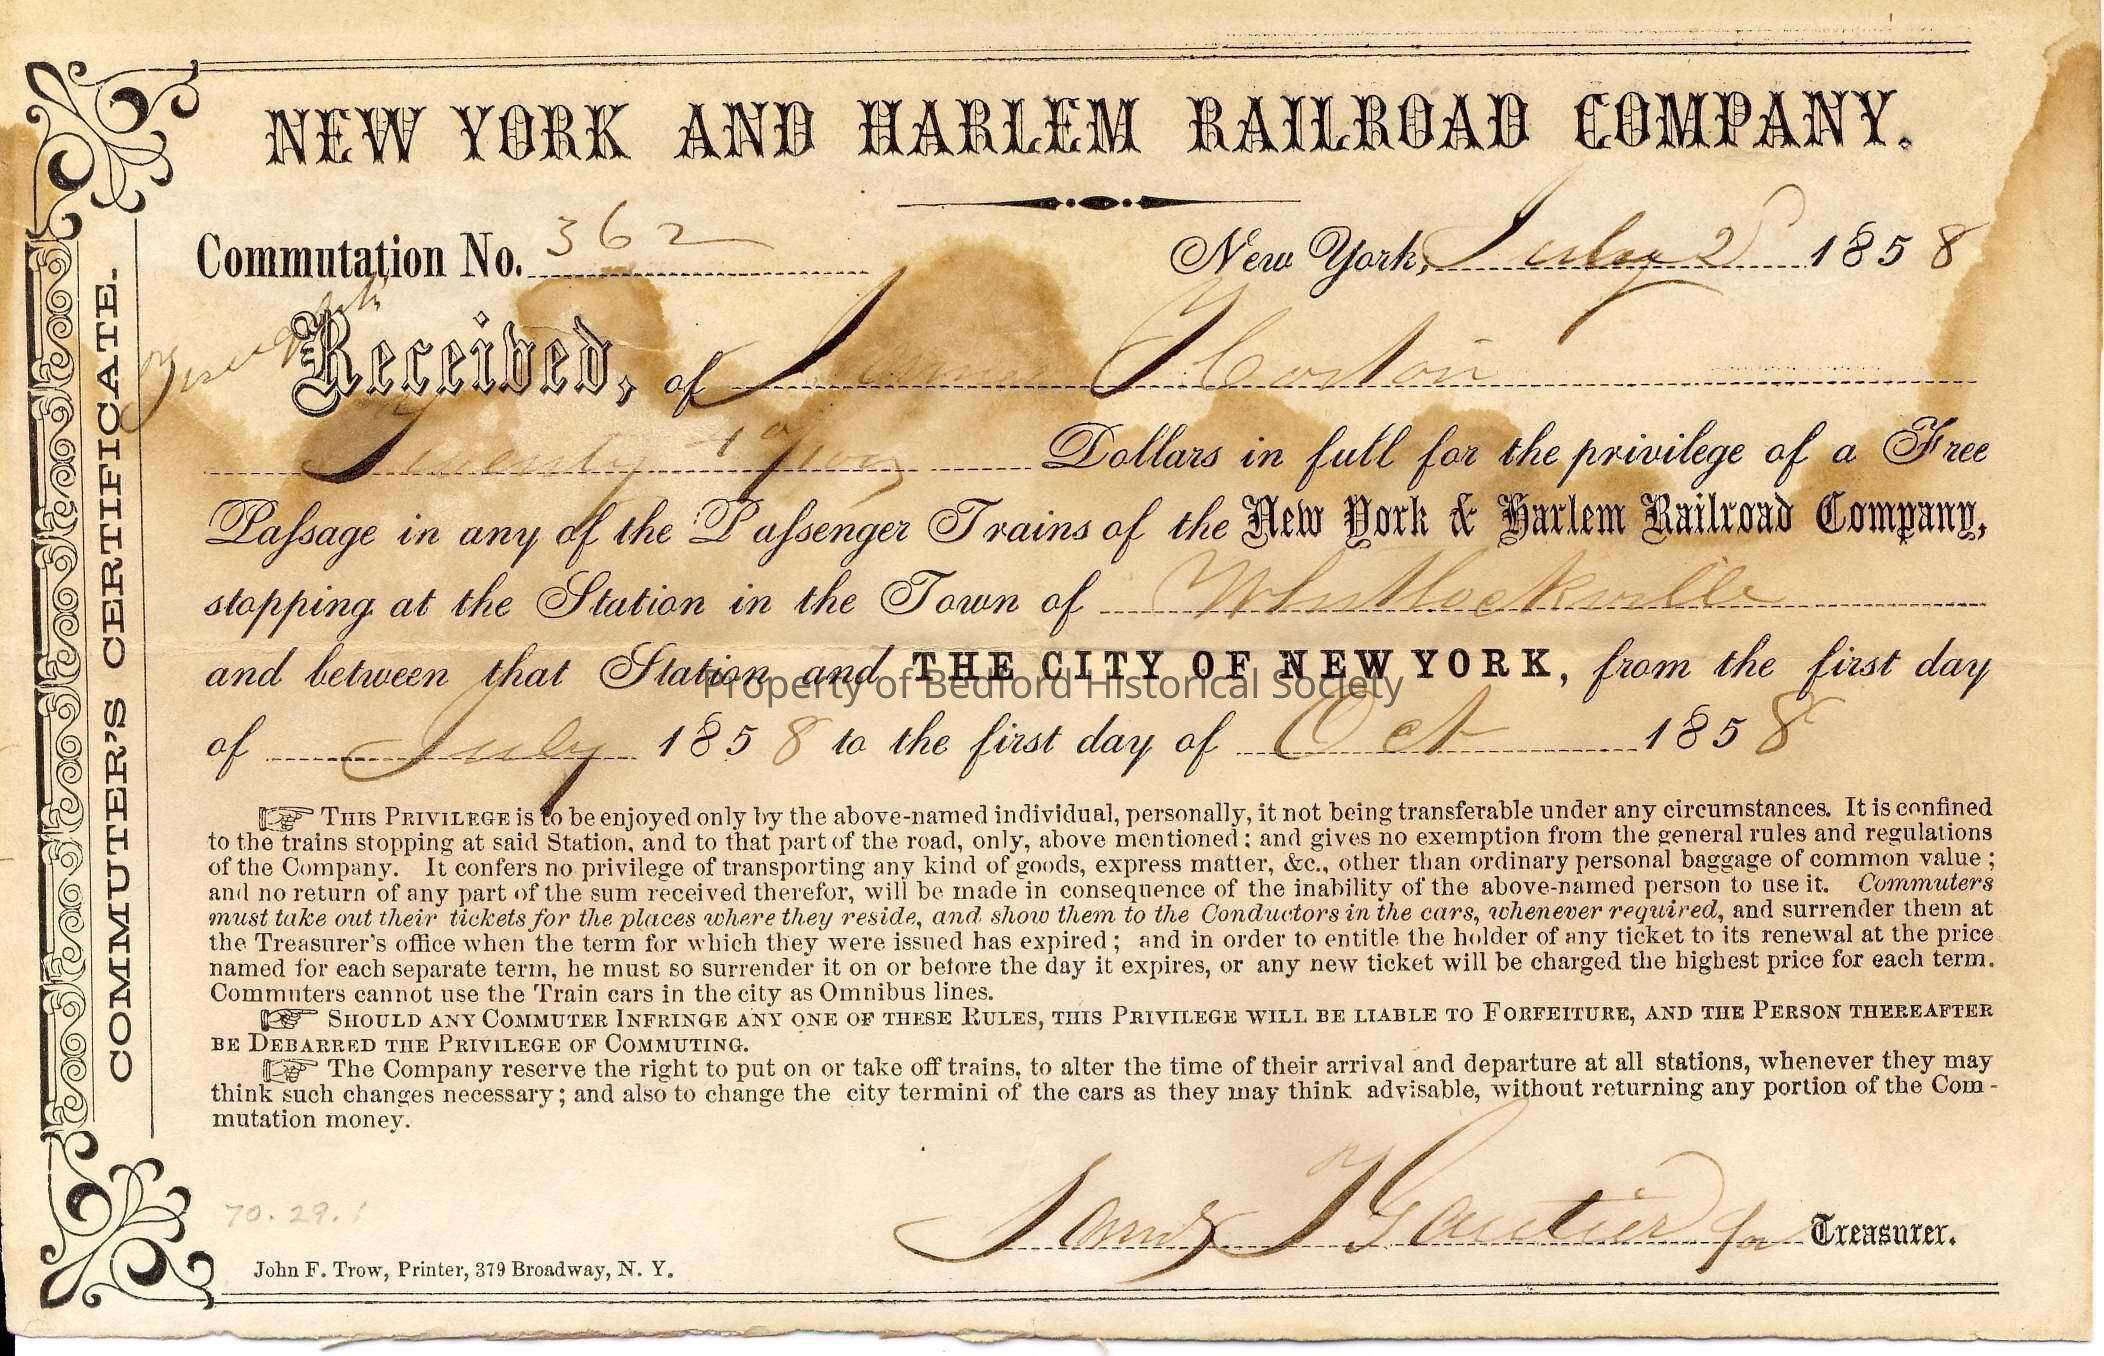 NEW YORK AND HARLEM RAILROAD COMPANY.
Commutation No. 362 New York, July 2 1858
Received, of Horton
Twenty Dollars in full for the privilege of a Free
Passage in any of the Passenger Trains of the New York & Harlem Railroad Company,
stopping at the Station in the Town of Whitlockville
and between that Station and THE CITY OF NEW YORK, from the first day
Property of Bedford Historical Society
of July 1858 to the first day of Oct 1858
☞ THIS PRIVILEGE is to be enjoyed only by the above-named individual, personally, it not being transferable under any circumstances. It is confined
to the trains stopping at said Station, and to that part of the road, only, above mentioned; and gives no exemption from the general rules and regulations
of the Company. It confers no privilege of transporting any kind of goods, express matter, &c., other than ordinary personal baggage of common value;
and no return of any part of the sum received therefor, will be made in consequence of the inability of the above-named person to use it. Commuters
must take out their tickets for the places where they reside, and show them to the Conductors in the cars, whenever required, and surrender them at
the Treasurer's office when the term for which they were issued has expired; and in order to entitle the holder of any ticket to its renewal at the price
named for each separate term, he must so surrender it on or before the day it expires, or any new ticket will be charged the highest price for each term.
Commuters cannot use the Train cars in the city as Omnibus lines.
☞ SHOULD ANY COMMUTER INFRINGE ANY ONE OF THESE RULES, THIS PRIVILEGE WILL BE LIABLE TO FORFEITURE, AND THE PERSON THEREAFTER
BE DEBARRED THE PRIVILEGE OF COMMUTING.
☞ The Company reserve the right to put on or take off trains, to alter the time of their arrival and departure at all stations, whenever they may
think such changes necessary; and also to change the city termini of the cars as they may think advisable, without returning any portion of the Com-
mutation money.
70.29.1
Gautier for Treasurer.
John F. Trow, Printer, 379 Broadway, N. Y.
COMMUTER'S CERTIFICATE.